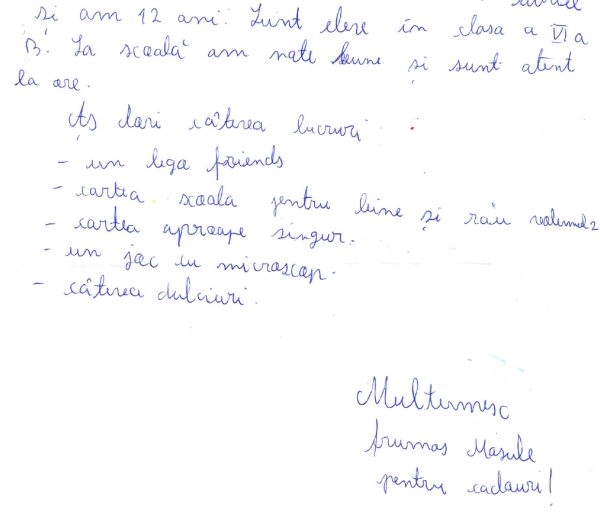 și am 12 ani. Sunt elev în clasa a VI a
B. La școală am note bune și sunt atent
la ore.
Aș dori câterea lucruri
- un lego friends
- cartea școala pentru bine și rău volumul 2
- cartea aproape singur.
- un joc cu microscop.
- câterea dulciuri.
Multumesc
frumos Mosule
pentru cadouri!